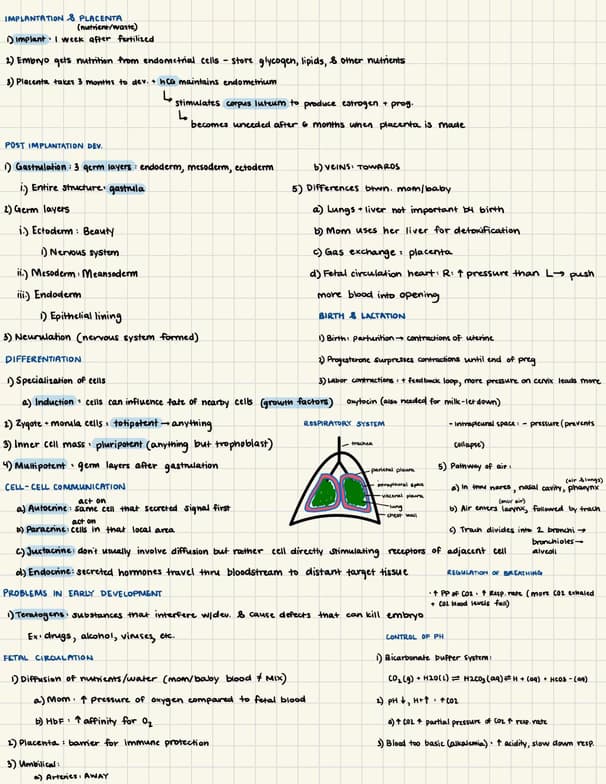 IMPLANTATION & PLACENTA
(nutrient/waste)
1) Implant: 1 week after fertilized
2) Embryo gets nutrition from endometrial cells - store glycogen, lipids, & other nutrients
3) Placenta takes 3 months to dev. + hCG maintains endometrium
stimulates corpus luteum to produce estrogen + prog.
becomes uneeded after 6 months when placenta is made
POST IMPLANTATION DEV.
1) Gastrulation: 3 germ layers: endoderm, mesoderm, ectoderm
i.) Entire structure: gastrula
2) Germ layers
i.) Ectoderm: Beauty
1) Nervous system
ii.) Mesoderm: Meansoderm
iii.) Endoderm
1) Epithelial lining
3) Neurulation (nervous system formed)
DIFFERENTIATION
1) Specialization of cells
a) Induction: cells can influence fate of nearby cells (growth factors)
2) Zygote + morula cells: totipotent → anything
3) Inner cell mass: pluripotent (anything but trophoblast)
4) Multipotent: germ layers after gastrulation
CELL-CELL COMMUNICATION
act on
a) Autocrine: same cell that secreted signal first
act on
b) Paracrine: cells in that local area
c) Juctacrine: don't usually involve diffusion but rather cell directly stimulating receptors of adjacent cell
d) Endocrine: secreted hormones travel thru bloodstream to distant target tissue
PROBLEMS IN EARLY DEVELOPMENT
1) Teratogens: substances that interfere w/dev. & cause defects that can kill embryo
Ex: drugs, alcohol, viruses, etc.
FETAL CIRCULATION
1) Diffusion of nutrients/water (mom/baby blood ≠ MIX)
a) Mom: ↑ pressure of oxygen compared to fetal blood
b) HbF: ↑ affinity for O₂
2) Placenta: barrier for immune protection
3) Umbilical:
a) Arteries: AWAY
b) VEINS: TOWARDS
5) Differences btwn. mom/baby
a) Lungs + liver not important b4 birth
b) Mom uses her liver for detoxification
c) Gas exchange: placenta
d) Fetal circulation heart: R: ↑ pressure than L → push
more blood into opening
BIRTH & LACTATION
1) Birth: parturition → contractions of uterine
2) Progesterone surpresses contractions until end of preg
3) Labor contractions: + feedback loop, more pressure on cervix leads more
oxytocin (also needed for milk-letdown)
RESPIRATORY SYSTEM
trachea
parietal pleura
intrapleural space
visceral pleura
lung
chest wall
- Intrapleural space: - pressure (prevents
collapse)
5) Pathway of air:
(air & lungs)
a) In thru nares, nasal cavity, pharynx
b) Air enters larynx, followed by trach
c) Trach divides into 2 bronchi →
bronchioles →
alveoli
REGULATION OF BREATHING
· ↑ PP of CO2 · ↑ Resp. rate (more CO2 exhaled
+ CO2 blood levels fall)
CONTROL OF PH
1) Bicarbonate buffer system:
CO₂(g) + H2O(l) ⇌ H2CO3(aq) ⇌ H+(aq) + HCO3-(aq)
2) pH ↓, H+↑ · ↑CO2
a) ↑ CO2 ↑ partial pressure of CO2 ↑ resp. rate
3) Blood too basic (alkalemia) · ↑ acidity, slow down resp.